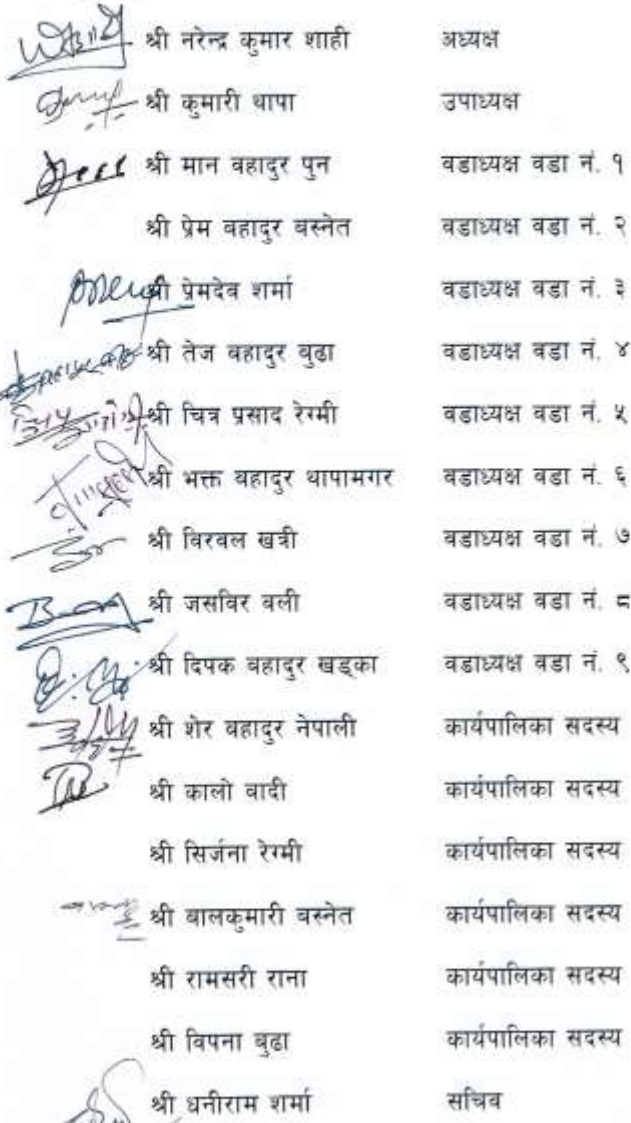 श्री नरेन्द्र कुमार शाही अध्यक्ष
श्री कुमारी थापा उपाध्यक्ष
श्री मान वहादुर पुन वडाध्यक्ष वडा नं. १
श्री प्रेम वहादुर बस्नेत वडाध्यक्ष वडा नं. २
श्री प्रेमदेव शर्मा वडाध्यक्ष वडा नं. ३
श्री तेज वहादुर वुढा वडाध्यक्ष वडा नं. ४
श्री चित्र प्रसाद रेग्मी वडाध्यक्ष वडा नं. ५
श्री भक्त वहादुर थापामगर वडाध्यक्ष वडा नं. ६
श्री विरवल खत्री वडाध्यक्ष वडा नं. ७
श्री जसविर वली वडाध्यक्ष वडा नं. ८
श्री दिपक वहादुर खड्का वडाध्यक्ष वडा नं. ९
श्री शेर वहादुर नेपाली कार्यपालिका सदस्य
श्री कालो वादी कार्यपालिका सदस्य
श्री सिर्जना रेग्मी कार्यपालिका सदस्य
श्री वालकुमारी बस्नेत कार्यपालिका सदस्य
श्री रामसरी राना कार्यपालिका सदस्य
श्री विपना बुढा कार्यपालिका सदस्य
श्री धनीराम शर्मा सचिव